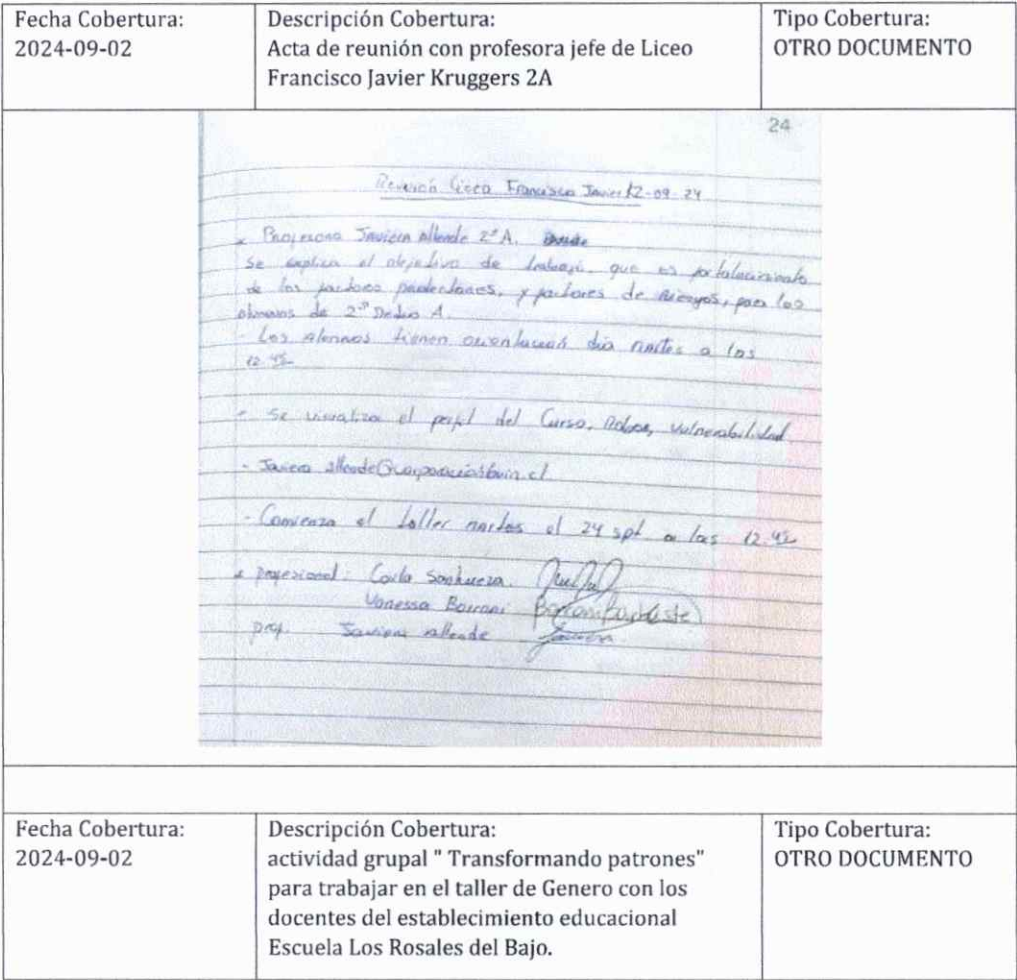 Fecha Cobertura:
2024-09-02
Descripción Cobertura:
Acta de reunión con profesora jefe de Liceo
Francisco Javier Kruggers 2A
Tipo Cobertura:
OTRO DOCUMENTO
24
Reunión Liceo Francisco Javier K2-09-24
Profesora Javiera Allende 2° A.
Se explica el objetivo de trabajo, que es fortalecimiento
de los factores protectores, y factores de Riesgos, para los
alumnos de 2° A.
- Los alumnos tienen orientación día martes a las
12.45
- Se visualiza el perfil del Curso, Robos, Vulnerabilidad
- Javiera.allende@corporacionbuin.cl
- Comienza el taller martes el 24 spt a las 12.45
profesional: Carla Sanhueza.
Vanessa Barrani
prof. Javiera Allende
Fecha Cobertura:
2024-09-02
Descripción Cobertura:
actividad grupal " Transformando patrones"
para trabajar en el taller de Genero con los
docentes del establecimiento educacional
Escuela Los Rosales del Bajo.
Tipo Cobertura:
OTRO DOCUMENTO